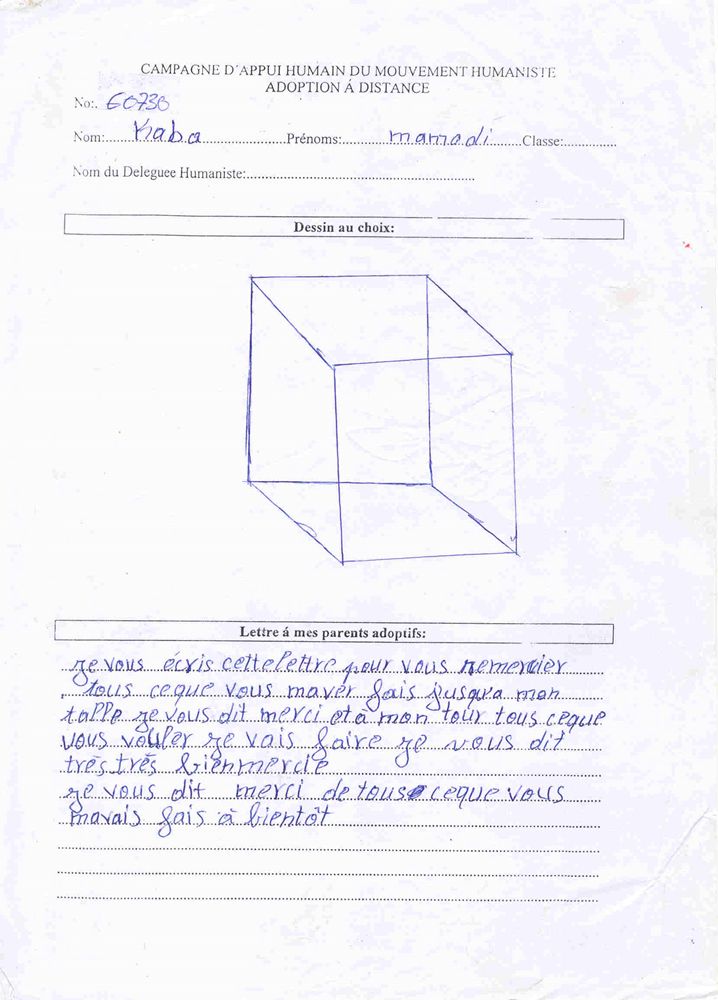 CAMPAGNE D'APPUI HUMAIN DU MOUVEMENT HUMANISTE
ADOPTION Á DISTANCE
No:. 60730
Nom:......Kaba......Prénoms:......mamadi......Classe:......
Nom du Deleguee Humaniste:......
Dessin au choix:
Lettre á mes parents adoptifs:
je vous écris cette lettre pour vous remercier
tous ceque vous maver fais jusqua mon
je vous dit merci et à mon tour tous ceque
vous vouler je vais faire je vous dit
très très bien mercie
je vous dit merci de tous ceque vous
mavais fais à bientôt